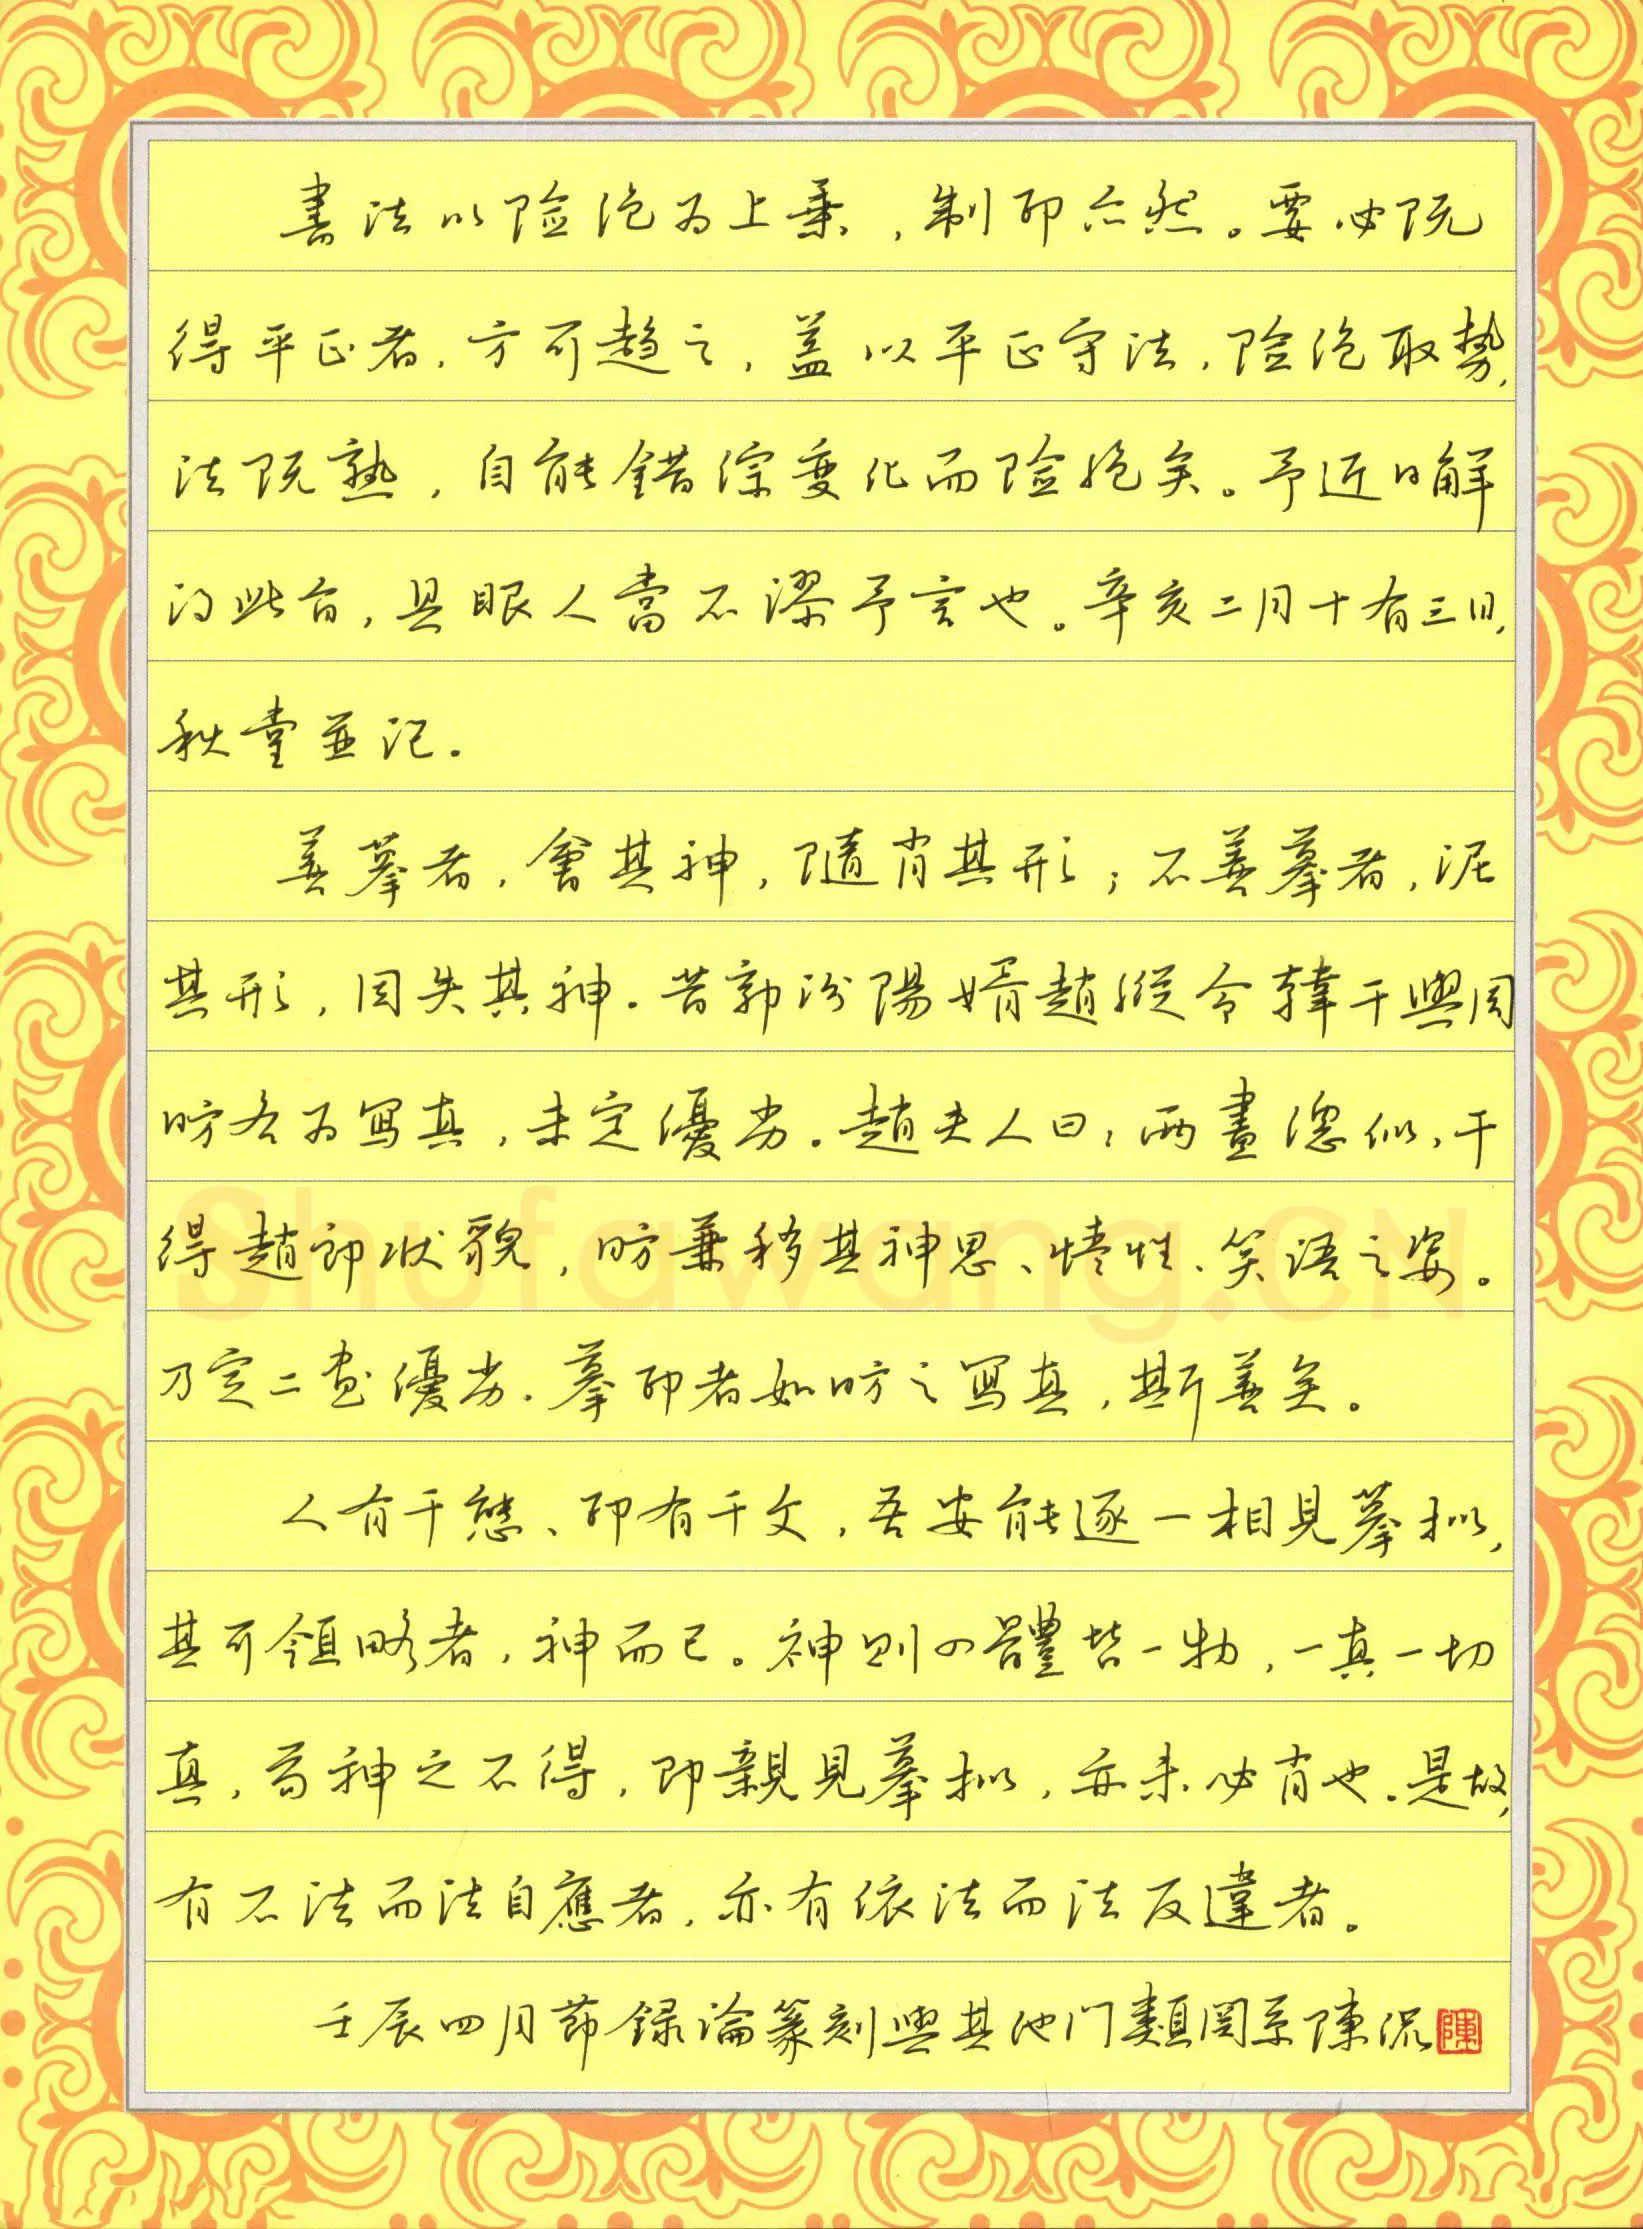 書法以险绝为上乘，制印亦然。要必既
得平正者，方可趋之，盖以平正守法，险绝取势，
法既熟，自能错综变化而险绝矣。予近日解
得此旨，具眼人當不謬予言也。辛亥二月十有三日，
秋堂並记。
善摹者，會其神，隨肖其形；不善摹者，泥
其形，因失其神。昔郭汾陽婿趙縱令韓干與周
昉各为写真，未定優劣。趙夫人曰：两畫總似，干
得趙郎状貌，昉兼移其神思、情性、笑语之姿。
乃定二画優劣。摹印者如昉之写真，斯善矣。
人有千態、印有千文，吾安能逐一相見摹拟，
其可領略者，神而已。神则四體皆一物，一真一切
真，苟神之不得，即親見摹拟，亦未必肖也。是故，
有不法而法自應者，亦有依法而法反違者。
壬辰四月節録論篆刻與其他门類関系陳侃
陳
Shufawang.CN